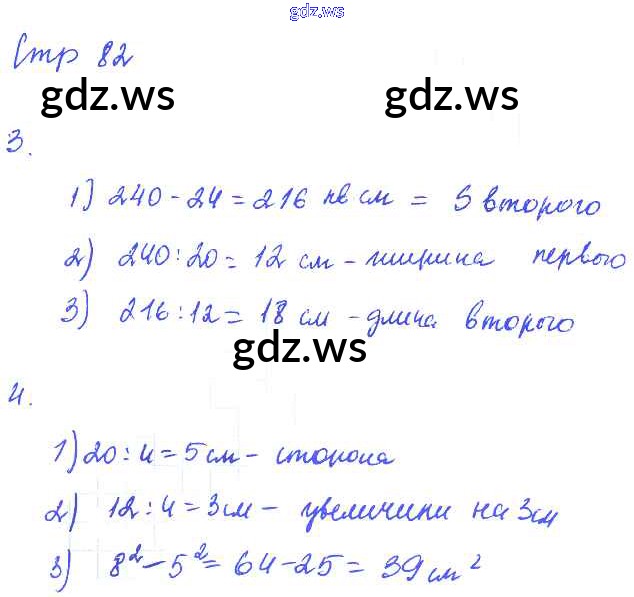 gdz.ws
Стр 82
gdz.ws gdz.ws
3.
1) 240 - 24 = 216 кв см = S второго
2) 240 : 20 = 12 см - ширина первого
3) 216 : 12 = 18 см - длина второго
gdz.ws
4.
1) 20 : 4 = 5 см - сторона
2) 12 : 4 = 3 см - увеличили на 3 см
3) 8² - 5² = 64 - 25 = 39 см²